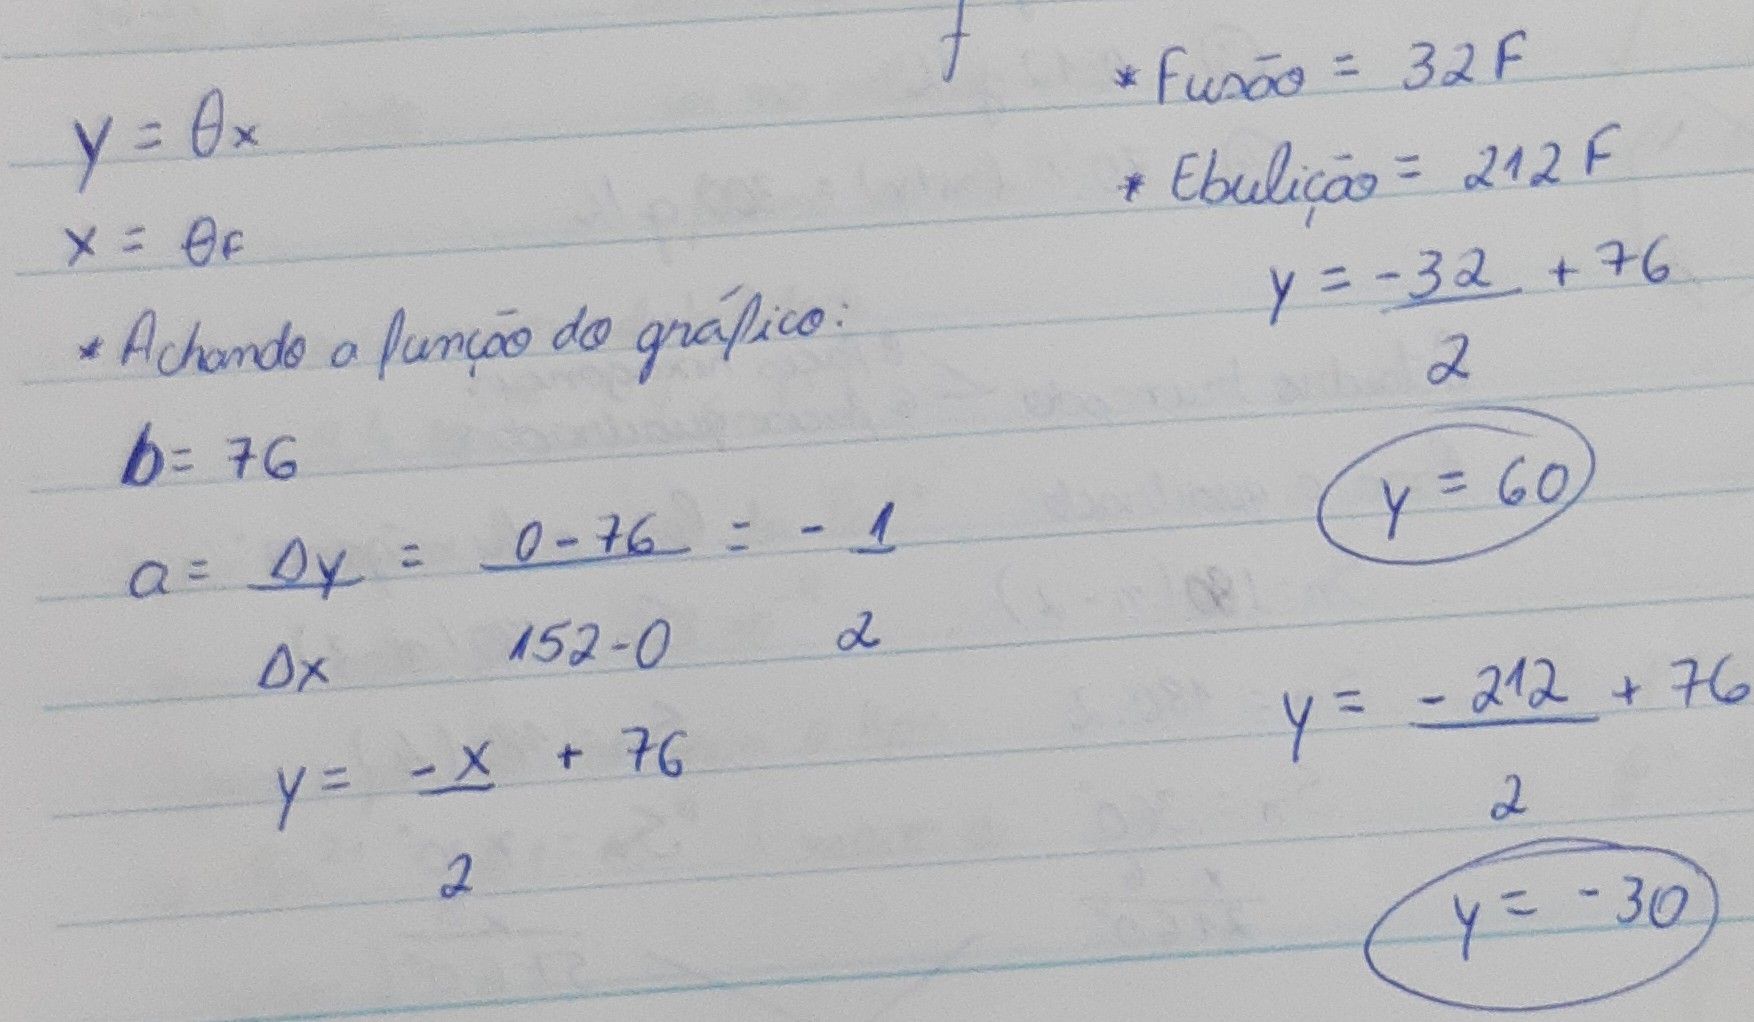 y = θx
x = θF
* Achando a função do gráfico:
b = 76
a = Δy = 0 - 76 = - 1
Δx 152 - 0 2
y = - x + 76
2
* Fusão = 32 F
* Ebulição = 212 F
y = - 32 + 76
2
y = 60
y = - 212 + 76
2
y = - 30